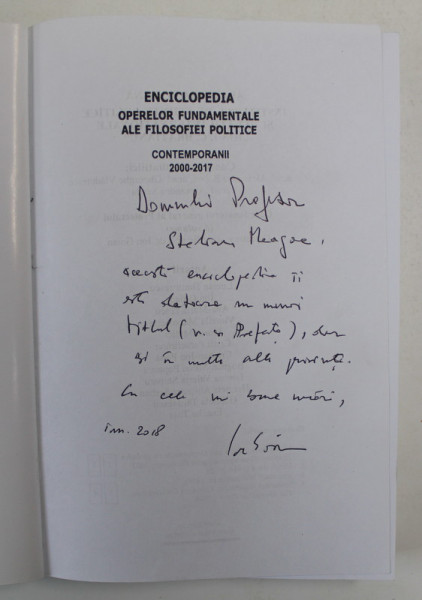 ENCICLOPEDIA
OPERELOR FUNDAMENTALE
ALE FILOSOFIEI POLITICE
CONTEMPORANII
2000-2017
Domnului Profesor
Stelian Neagoe,
această enciclopedie îi
este datoare nu numai
titlul (v. și Prefața), dar
și în multe alte privințe.
Cu cele mai bune urări,
ian. 2018